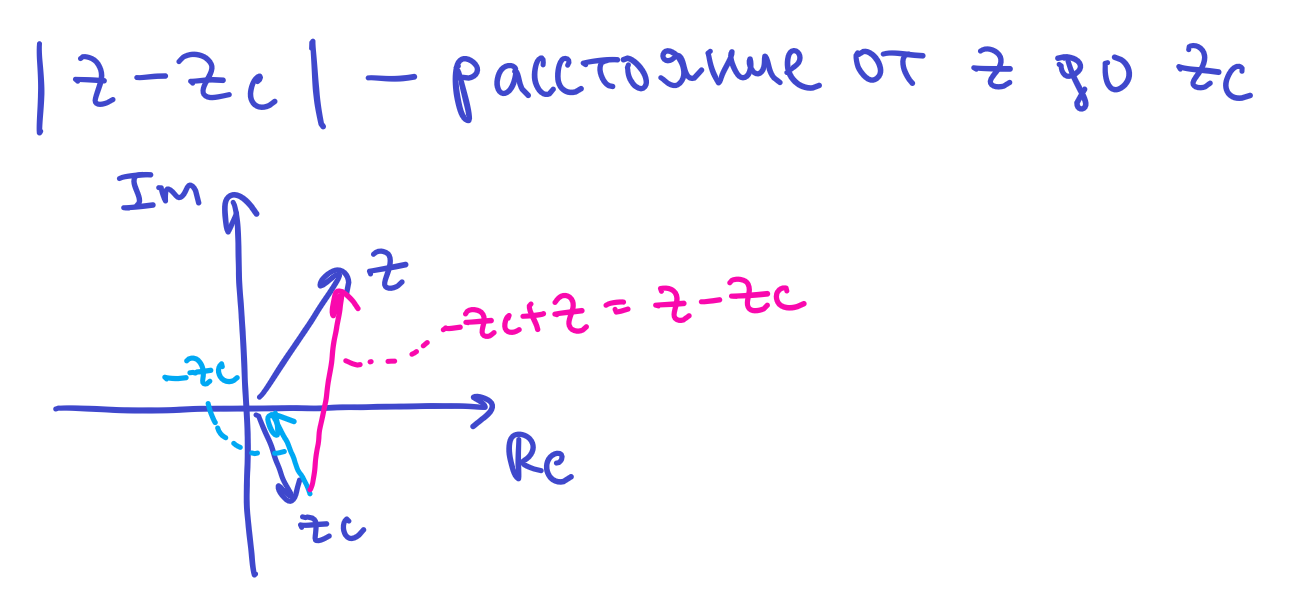 |z-zc| - расстояние от z до zc
Im
z
-zc+z = z-zc
-zc
Re
zc